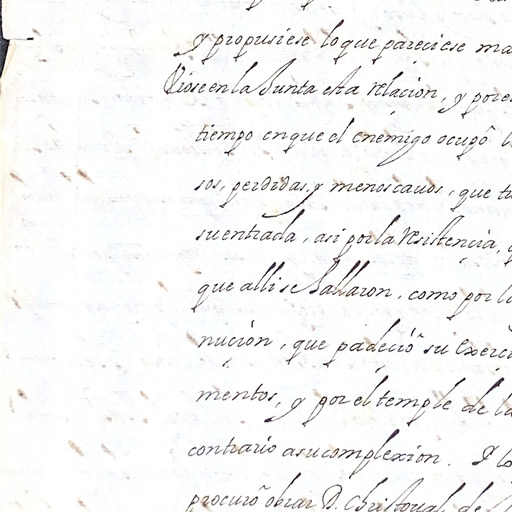 y propusiese lo que pareciese ma
Viose en la Junta esta relacion, y pore
tiempo en que el enemigo ocupô l
sos, perdidas, y menoscauos, que tu
su entrada, asi por la resistencia, q
que alli se hallaron, como por la
nución, que padeció su Exerci
mentos, y por el temple de la
contrario a su complexion. Y lo
procurô obrar D. Christoual de